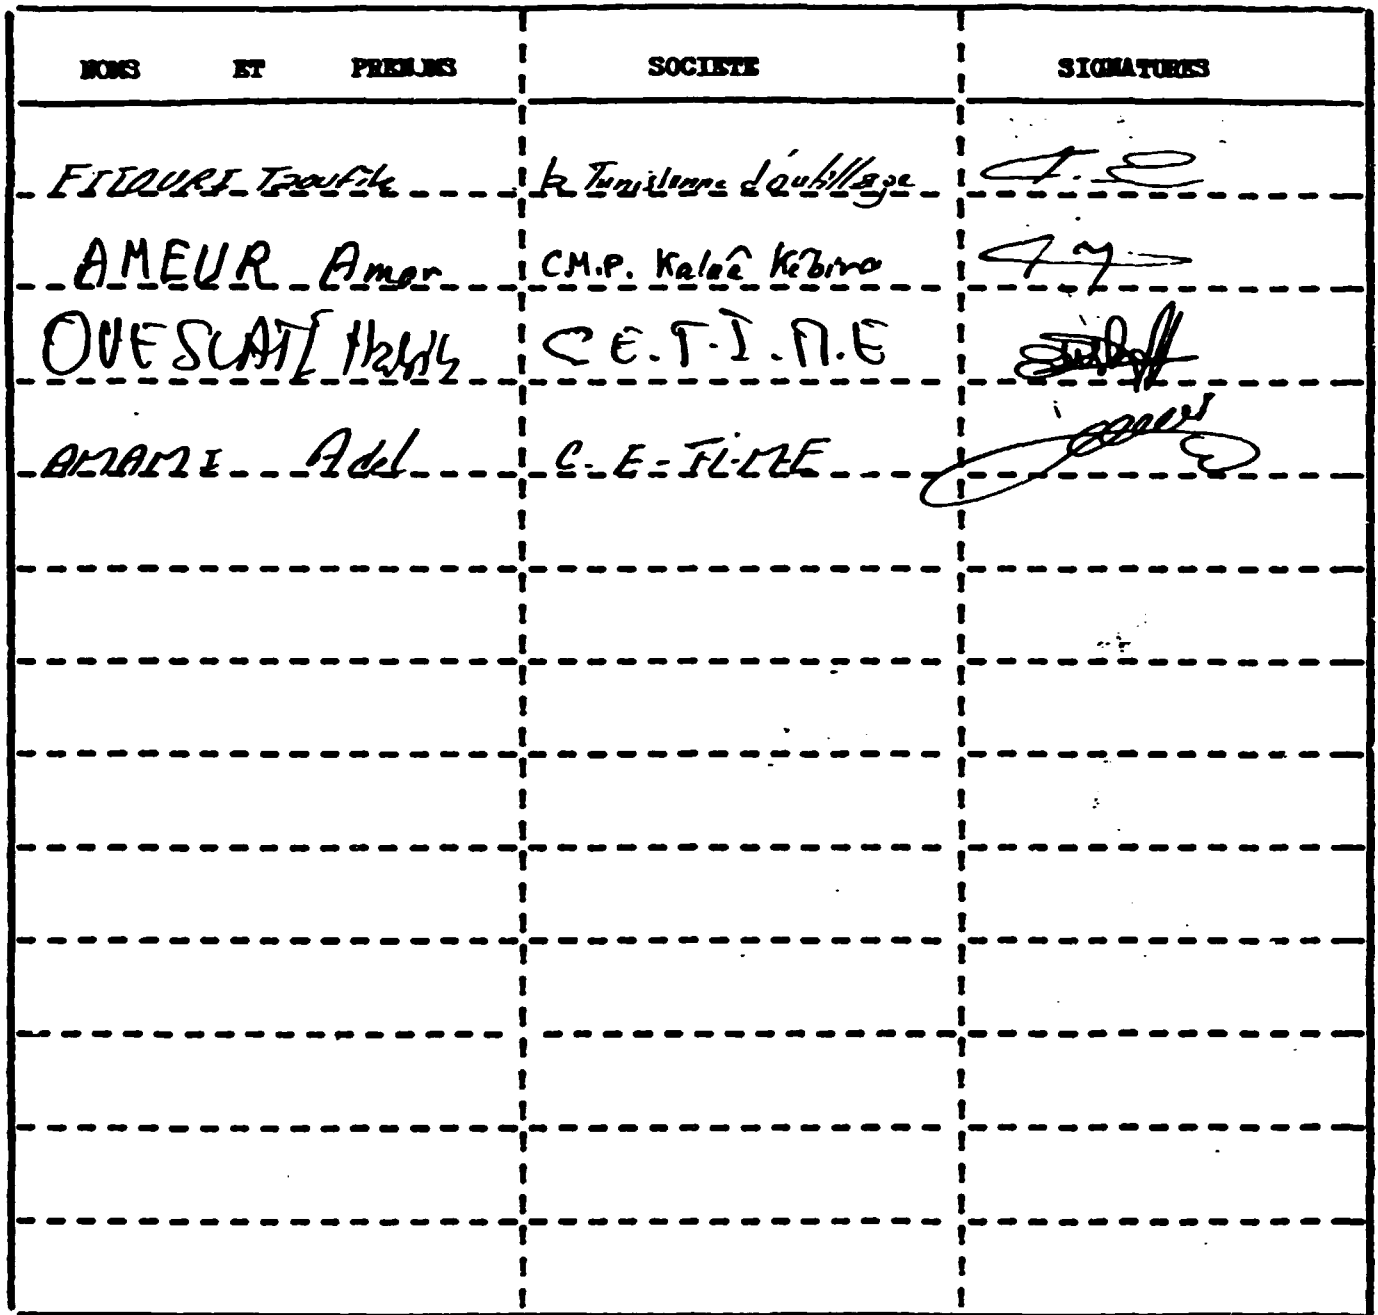 NOMS ET PRENOMS SOCIETE SIGNATURES
FITOURI Taoufik la Tunisienne d'outillage
AMEUR Amor C.M.P. Kalaâ Kebira
OUESLATI Habib C.E.T.I.M.E
AMAMI Adel C.E.TI.ME